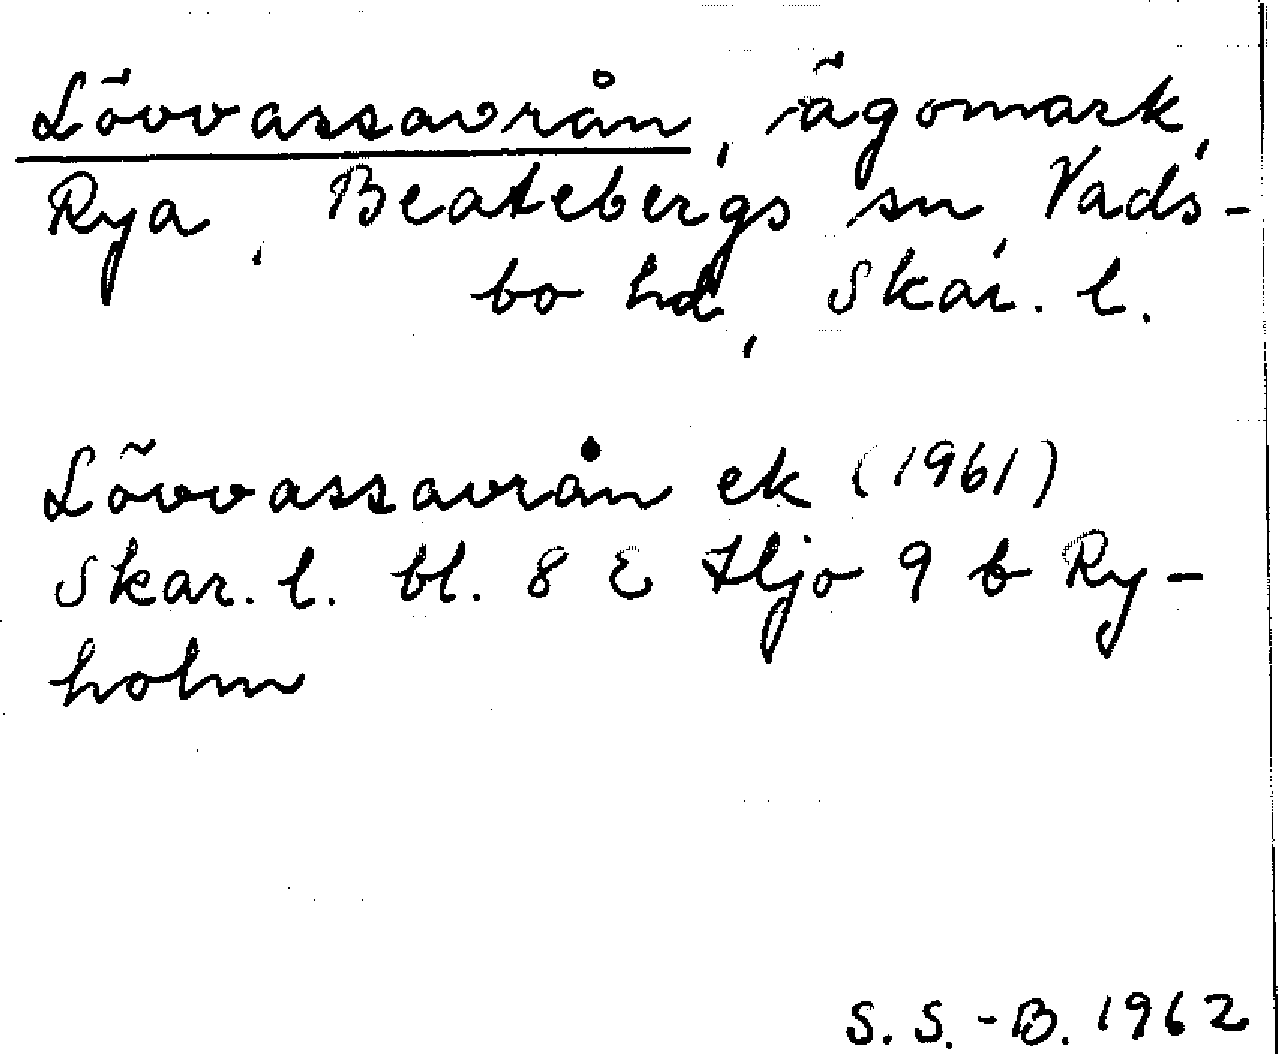 Lövvassavrån, ägomark,
Rya, Beatebergs sn, Vads-
bo hd, Skar. l.
Lövvassavrån ek (1961)
Skar. l. bl. 8 E Hjo 9 b Ry-
holm
S. S.-B. 1962